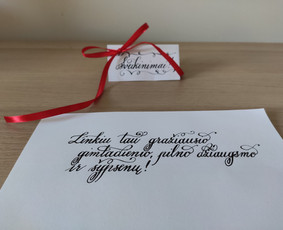 Sveikinimai
Linkiu tau gražiausio
gimtadienio, pilno džiaugsmo
ir šypsenų!